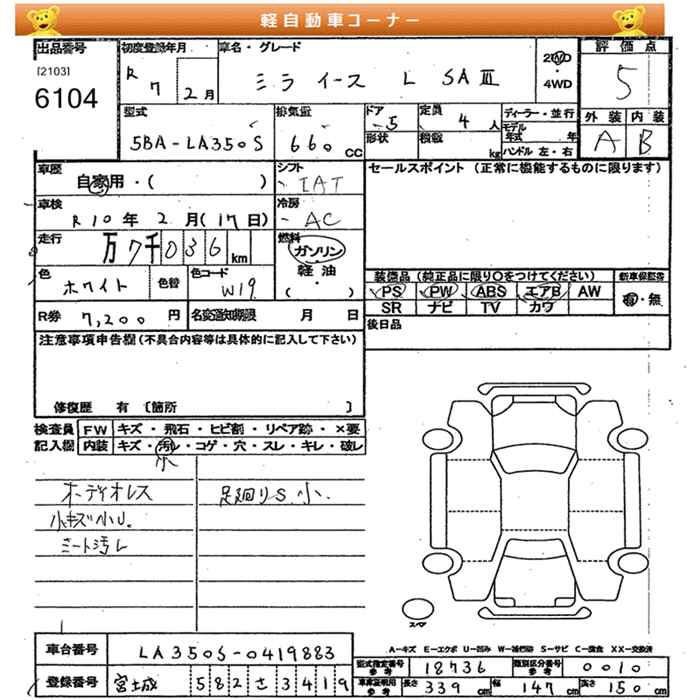 軽自動車コーナー
出品番号 初度登録年月 車名・グレード 2WD・4WD 評価点
[2103]
6104
R 7 2月 ミライース L SAⅢ 5
型式 排気量 ドア形状 定員 積載 ディーラー・並行 外装 内装
5BA-LA350S 660cc 5 4人 kg モデル年式 年 ハンドル 左・右 A B
車歴 シフト セールスポイント (正常に機能するものに限ります)
自家用・( ) IAT
車検 冷房
R10年2月(17日) AC
走行 燃料
万7千036km ガソリン・軽油・( )
色 色替 色コード 装備品 (純正品に限り○をつけてください) 新車保証書
ホワイト W19 PS PW ABS エアB AW 有・無
SR ナビ TV カワ
R券 7,200円 名変通知期限 月 日 後日品
注意事項申告欄 (不具合内容等は具体的に記入して下さい)
修復歴 有 〔箇所 〕
検査員記入欄 FW キズ・飛石・ヒビ割・リペア跡・×要
内装 キズ・汚レ・コゲ・穴・スレ・キレ・破レ
小
オーディオレス 足廻りS小
小キズ小U.
シート汚レ
スペア
A=キズ E=エクボ U=凹み W=補修跡 S=サビ C=腐食 XX=交換済
車台番号 LA350S-0419883 型式指定番号 参考 18736 類別区分番号 参考 0010
登録番号 宮城 582 さ 3419 車庫証明用 参考 長さ 339cm 幅 147cm 高さ 150cm